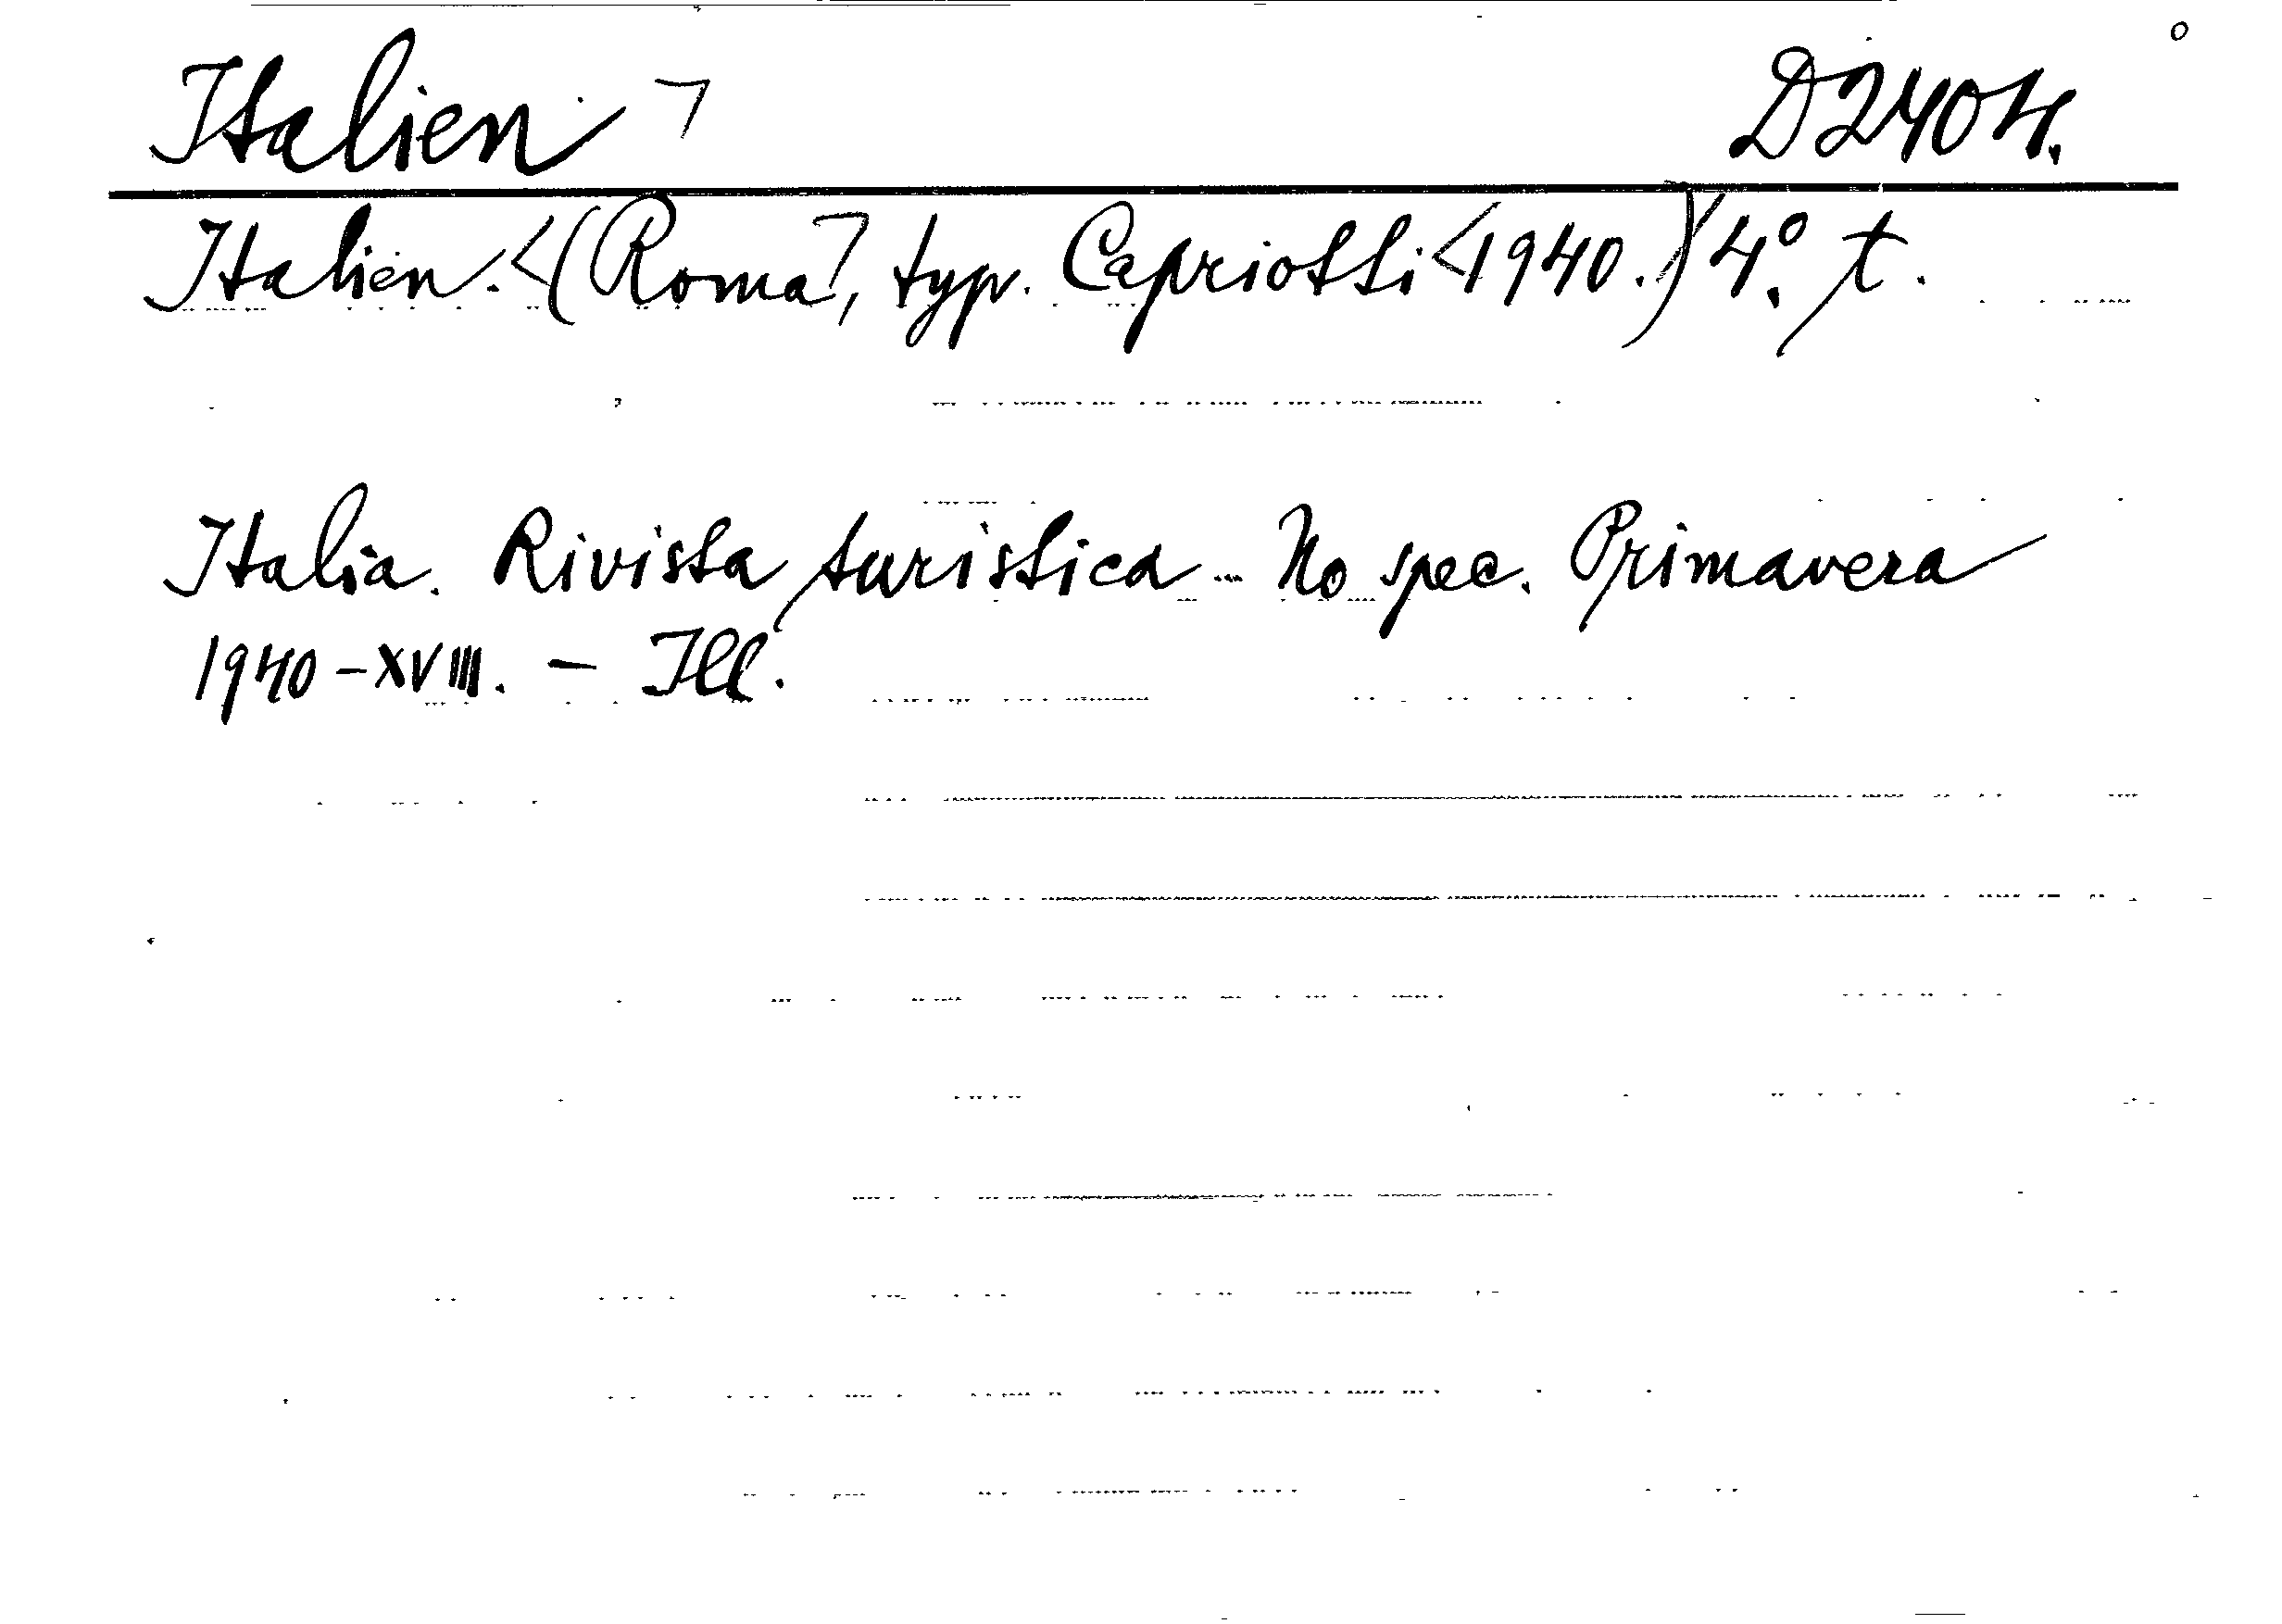 Italien ㄱ D2404.
Italien. <(Roma㇇, typ. Capriotti <1940.)/ 4:o t.
Italia. Rivista turistica ... No spec. Primavera
1940-XVIII. - Ill.